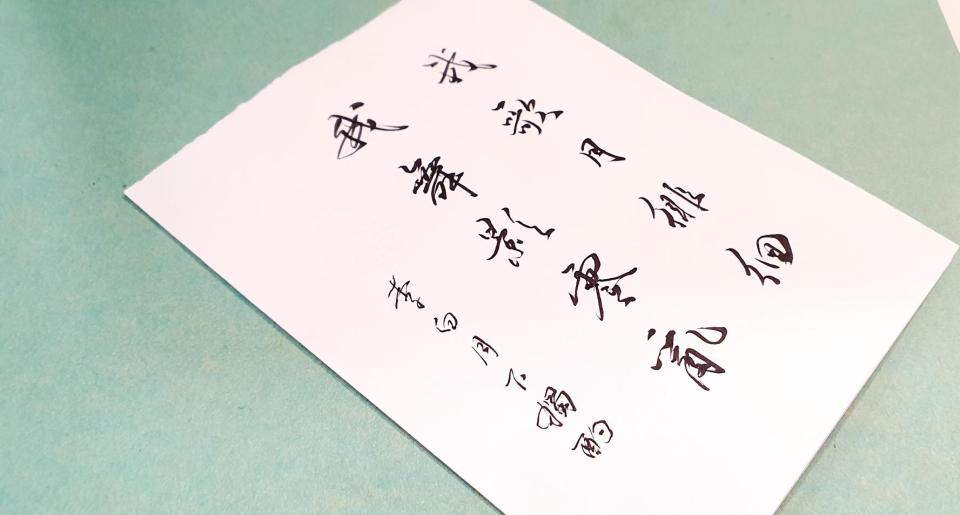 我歌月徘徊
我舞影零亂
李白月下獨酌